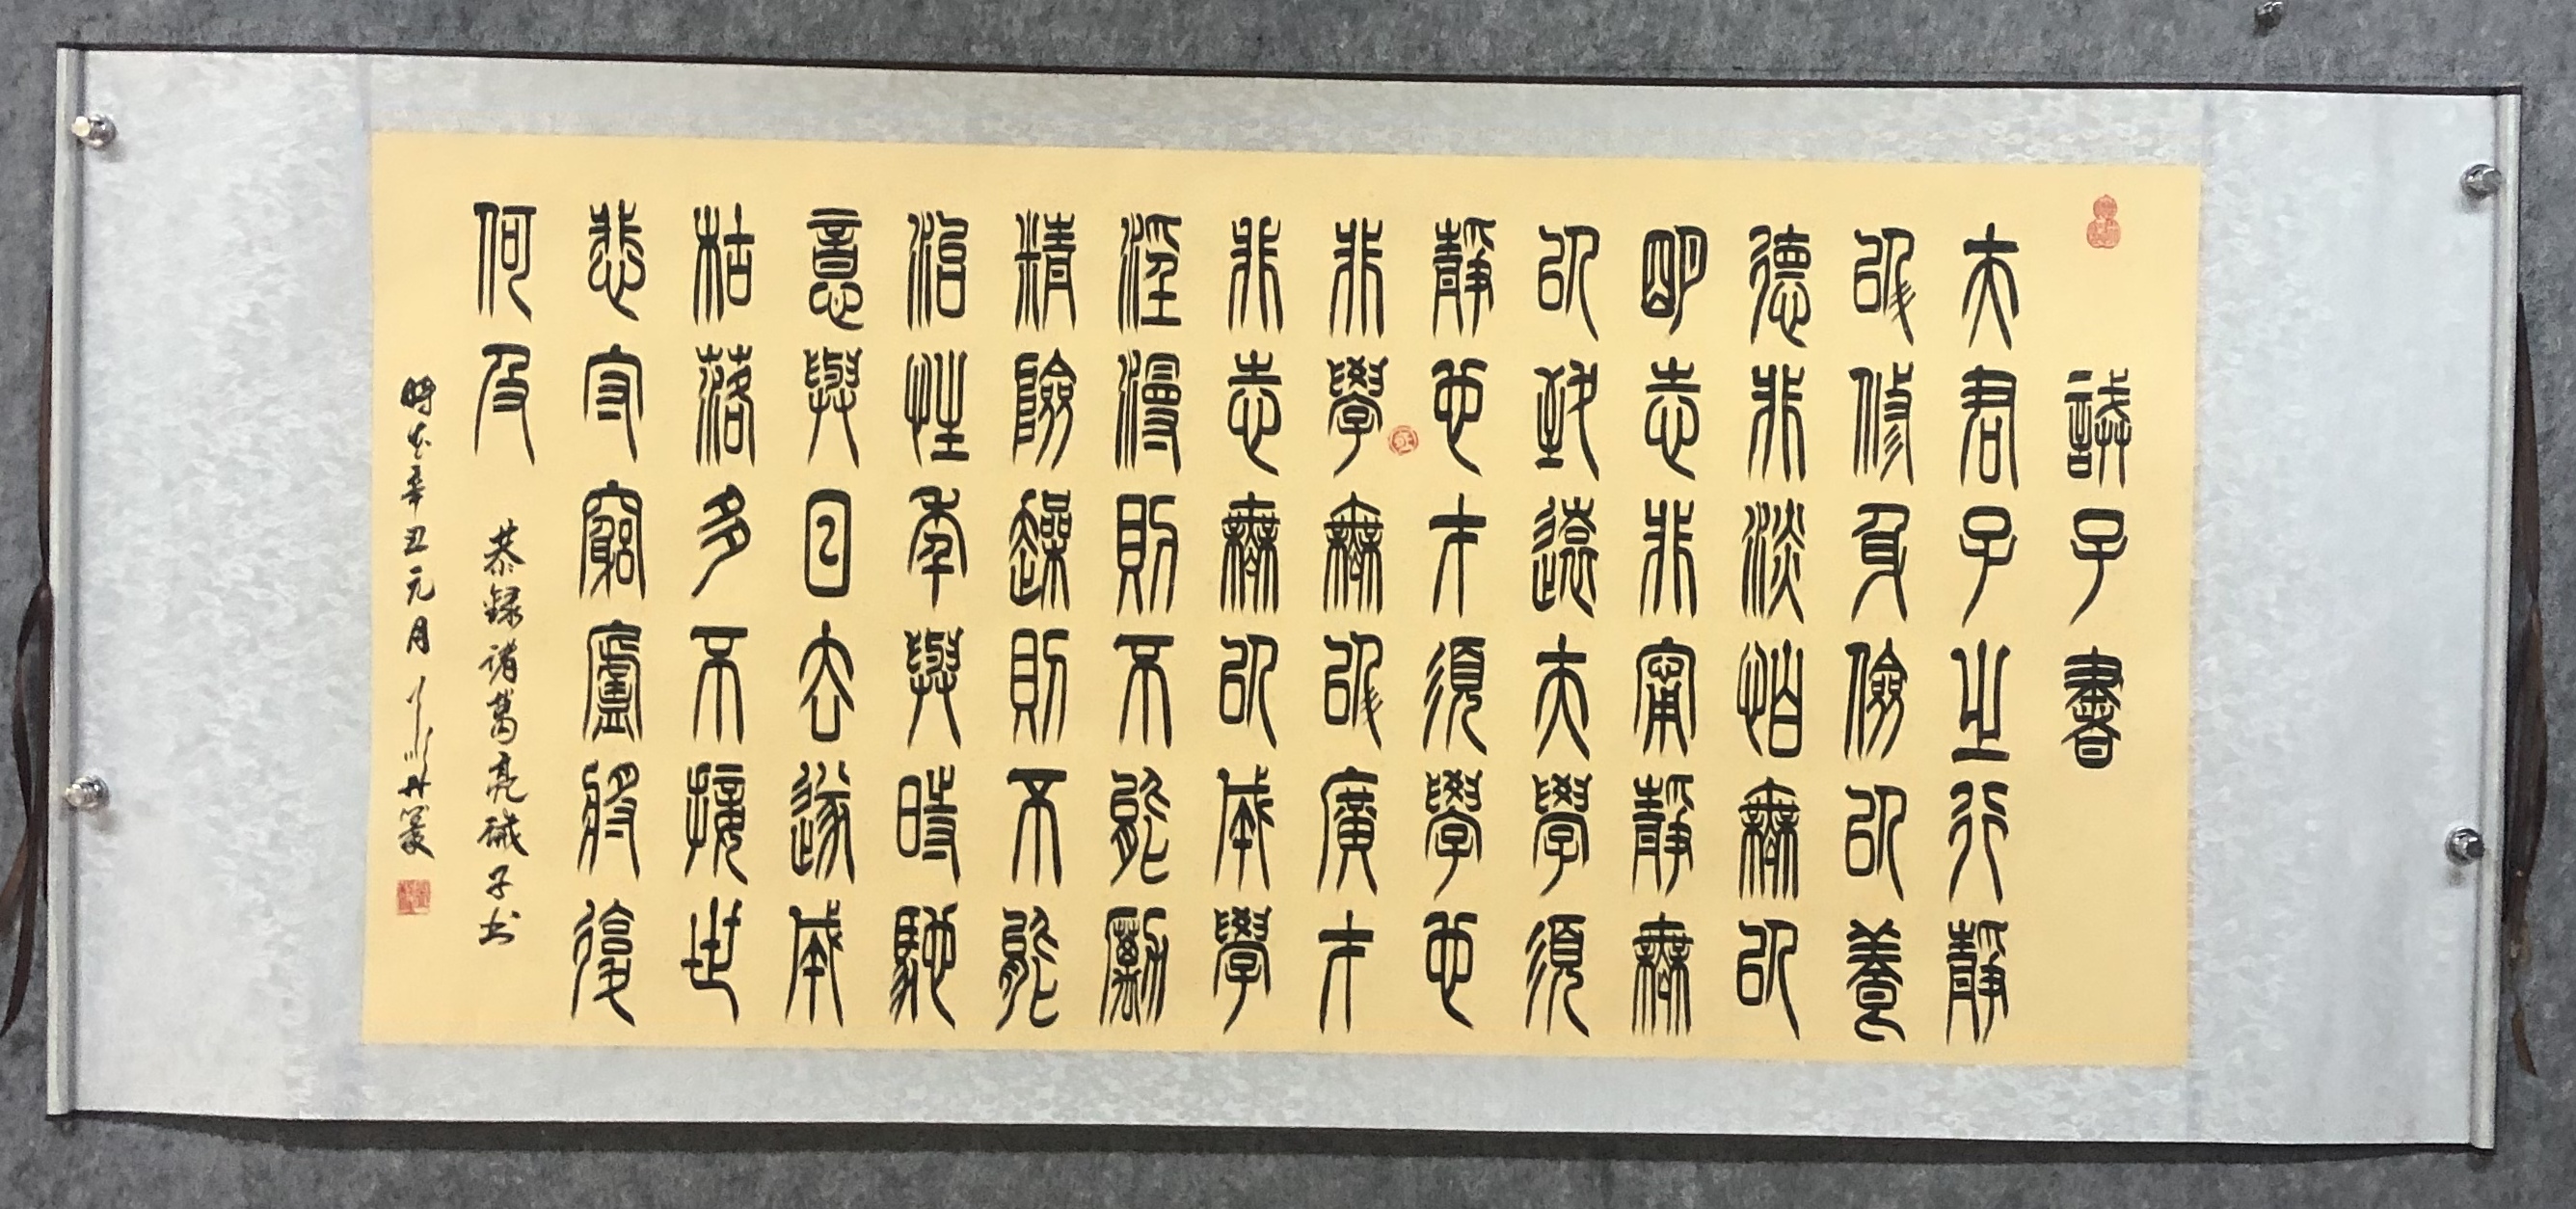 誡子書
夫君子之行靜
以修身儉以養
德非淡怕無以
明志非甯靜無
以致遠夫學須
靜也才須學也
非學無以廣才
非志無以成學
淫漫則不能勵
精險躁則不能
治性年與時馳
意與日去遂成
枯落多不接世
悲守窮廬將復
何及
恭録诸葛亮誡子书
時在辛丑元月 篆